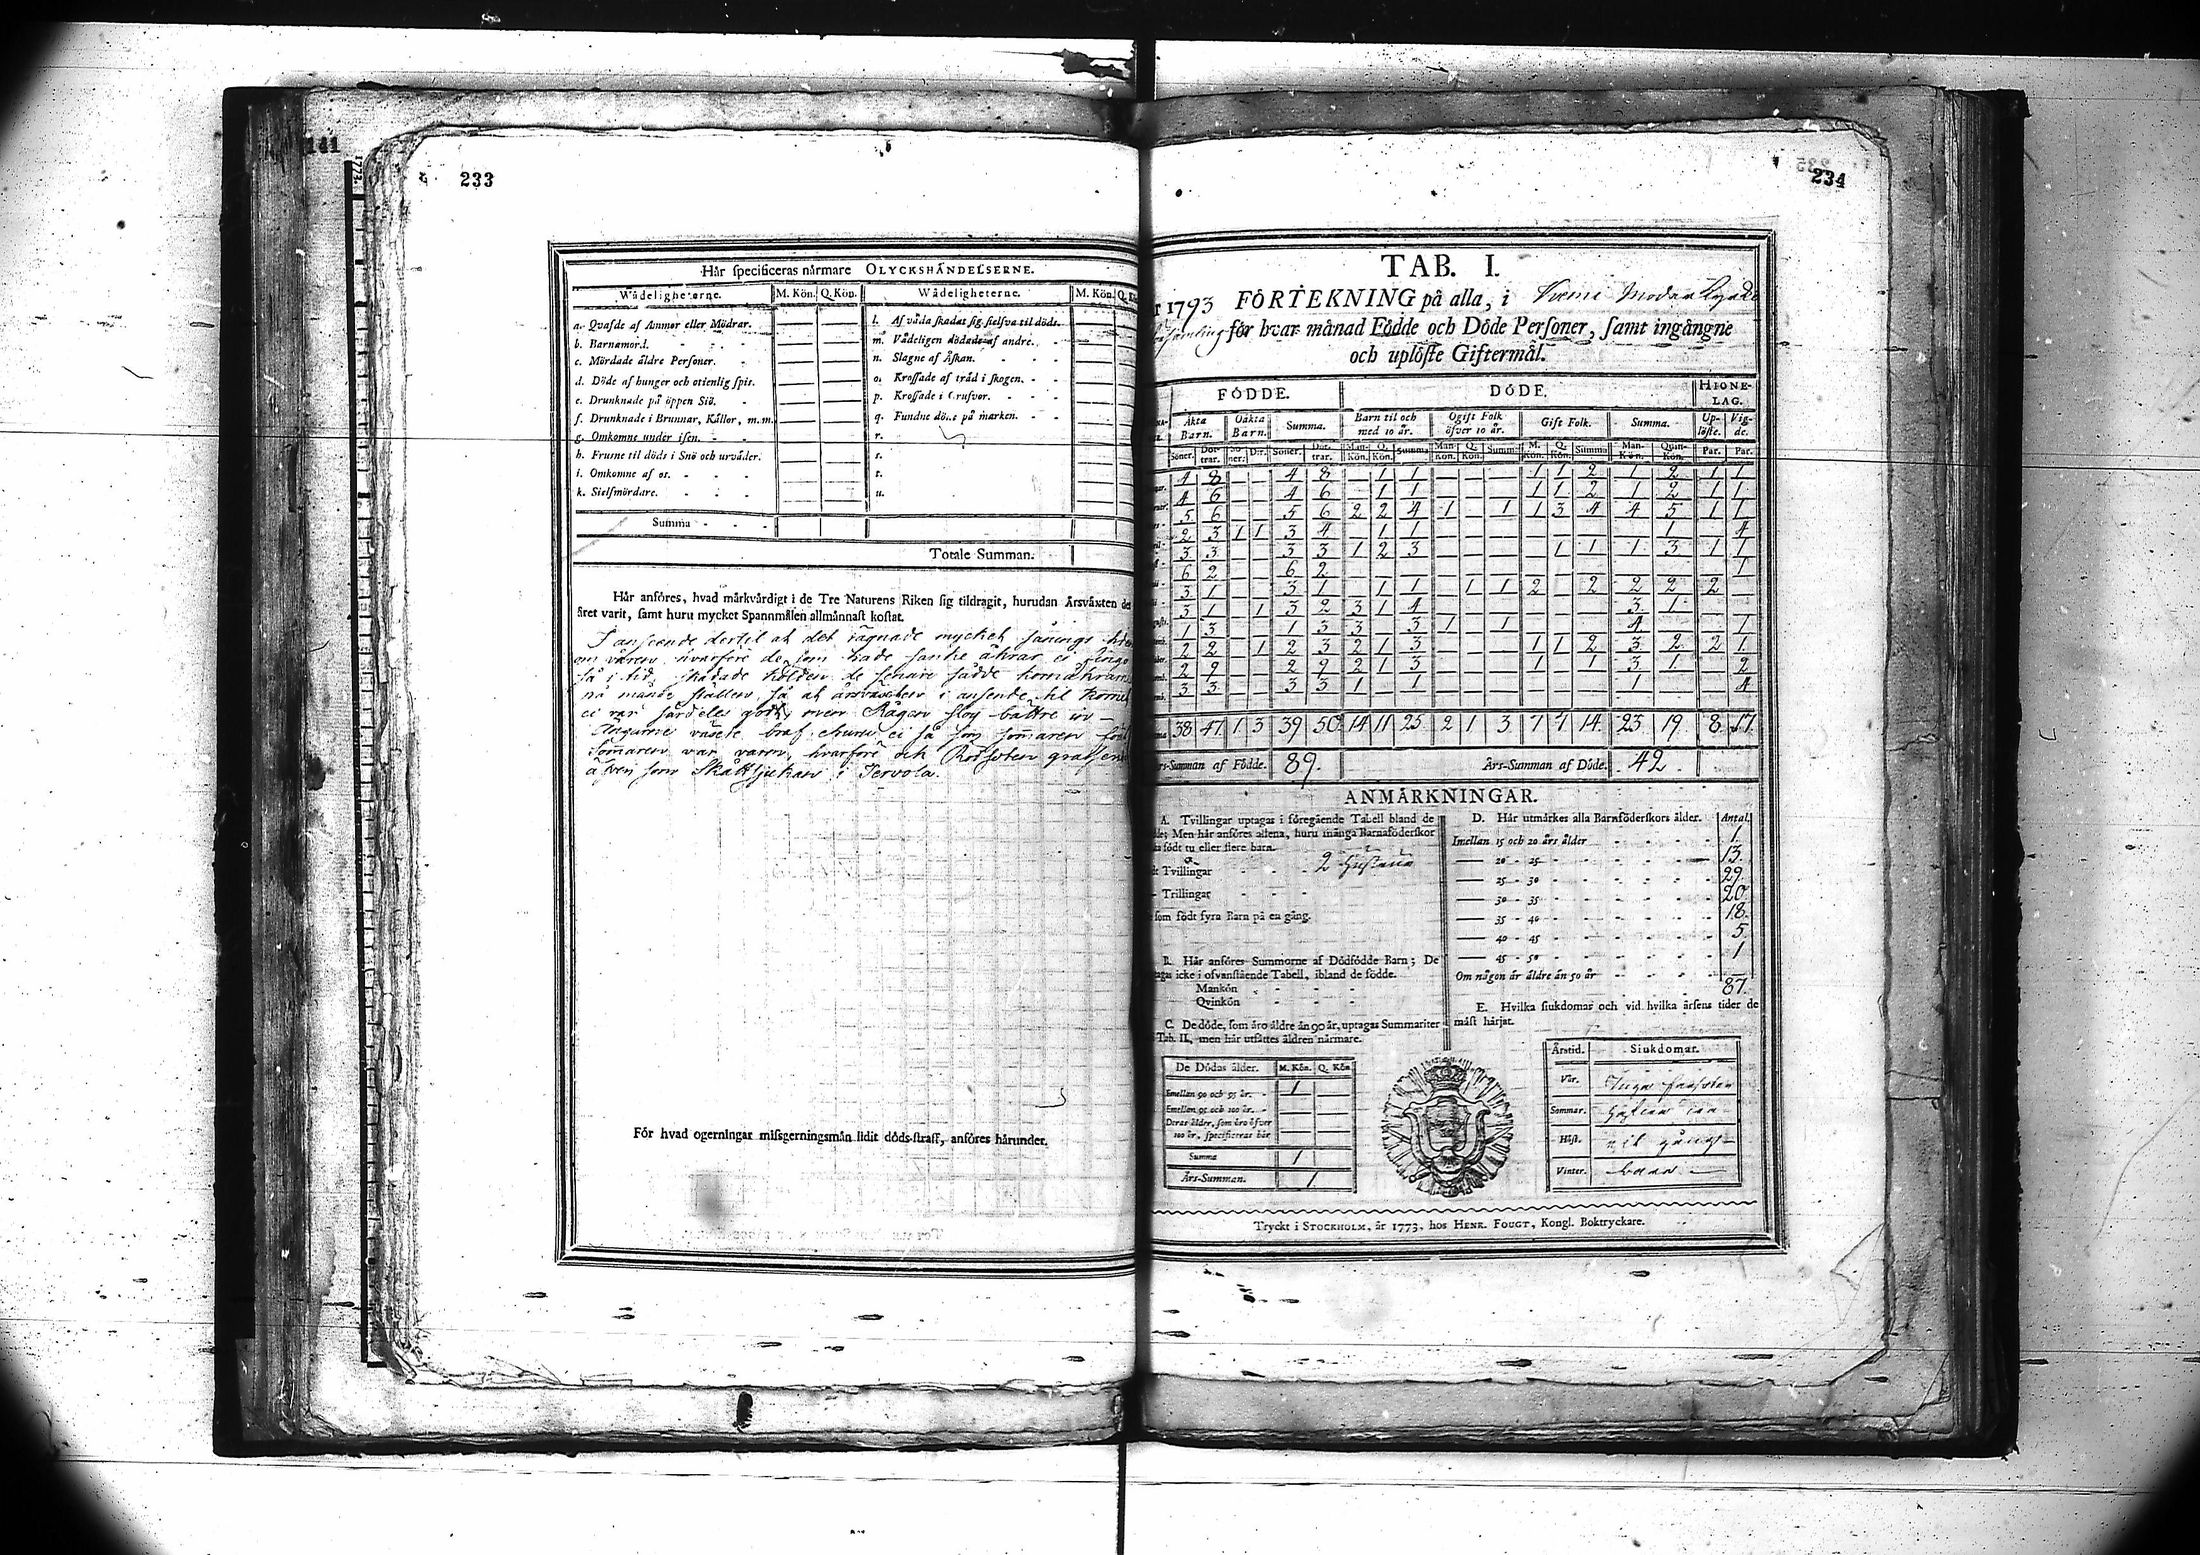 141
233
Hår specificeras nårmare OLYCKSHÅNDELSERNE.
Wådeligheterne. M. Kön. Q. Kön. Wådeligheterne. M. Kön.
a. Qvafde af Ammor eller Mödrar.
b. Barnamord.
c. Mördade åldre Personer.
d. Döde af hunger och otienlig spis.
e. Drunknade på öppen Siö.
f. Drunknade i Brunnar, Kållor, m.m.
g. Omkomne under isen.
h. Frusne til döds i Snö och urväder.
i. Omkomne af os.
k. Sielfmördare.
l. Af våda skadat sig sielfva til döds.
m. Vådeligen dödade af andre.
n. Slagne af Åskan.
o. Krossade af tråd i skogen.
p. Krossade i Grufvor.
q. Fundne döde på marken.
r.
s.
t.
u.
Summa
Totale Summan.
Hår anföres, hvad mårkvårdigt i de Tre Naturens Riken sig tildragit, hurudan Årsvåxten det
året varit, samt huru mycket Spannmålen allmånnast kostat.
I anseende dertil at det rägnade mycket sånings
om våren hvarföre de som hade åkrar ei
så i tid, skadade kölden de senare sådde
på månde ställen, så at årsväxten i ansende til Kornet
ei var särdeles god, men Rågen slog bättre in
Ängarne växte braf
Sommaren var varm, hvarföre och Rötsoten
äfven som i Tervola.
För hvad ogerningar missgerningsmån lidit döds-straff, anföres hårunder.
234
TAB. I.
1793 FÖRTEKNING på alla, i Kiemi Moder Kyrko
församling för hvar månad Födde och Döde Personer, samt ingångne
och uplöste Giftermål.
FÖDDE. DÖDE. HIONE-LAG.
Åkta Barn. Oåkta Barn. Summa. Barn til och med 10 år. Ogift Folk öfver 10 år. Gift Folk. Summa. Up-löste. Vig-de.
Söner. Döt-trar. Sö-ner. Dr. Söner. Döt-trar. Man-Kön. Q. Kön. Summa Man-Kön. Q. Kön. Summ. M. Kön. Q. Kön. Summa Man-Kön. Quin-Kön. Par. Par.
4 8 4 8 1 1 1 1 2 1 2 1 1
4 6 4 6 1 1 1 1 2 1 2 1 1
5 6 5 6 2 2 4 1 1 1 3 4 4 5 1 1
2 3 1 1 3 4 1 1 1 4
3 3 3 3 1 2 3 1 1 1 3 1 1
6 2 6 2 1
3 1 3 1 1 1 1 1 2 2 2 2 2
3 1 1 3 2 3 1 4 3 1
1 3 1 3 3 3 1 1 4 1
2 2 1 2 3 2 1 3 1 1 2 3 2 2 1
2 9 2 9 2 1 3 1 1 3 1 2
3 3 3 3 1 1 1 4
38 47 1 3 39 50 14 11 25 2 1 3 7 7 14 23 19 8 17
Års-Summan af Födde. 89. Års-Summan af Döde. 42
ANMÅRKNINGAR.
A. Tvillingar uptagas i föregående Tabell bland de
Men hår anföres allena, huru många Barnaföderskor
födt tu eller flere barn.
Tvillingar 2 Hustrur
Trillingar
som födt fyra Barn på en gång.
B. Hår anföres Summorne af Dödfödde Barn; De
icke i ofvanstående Tabell, ibland de födde.
Mankön
Qvinkön
C. De döde, som åro åldre ån 90 år, uptagas Summariter
Tab. II, men hår utsåttes åldren nårmare.
De Dödas ålder. M. Kön. Q. Kön
Emellan 90 och 95 år. 1
Emellan 95 och 100 år.
Deras ålder, som åro öfver
100 år, specificeras hår
Summa 1
Års-Summan. 1
D. Hår utmårkes alla Barnföderskors ålder. Antal.
Imellan 15 och 20 års ålder 1.
20 - 25 13.
25 - 30 29.
30 - 35 20
35 - 40 18.
40 - 45 5.
45 - 50 1
Om någon år åldre ån 50 år
87.
E. Hvilka siukdomar och vid hvilka årsens tider de
måst hårjat.
Årstid. Siukdomar.
Vår. Inga
Sommar.
Höst.
Vinter.
Tryckt i STOCKHOLM, år 1773, hos HENR. FOUGT, Kongl. Boktryckare.